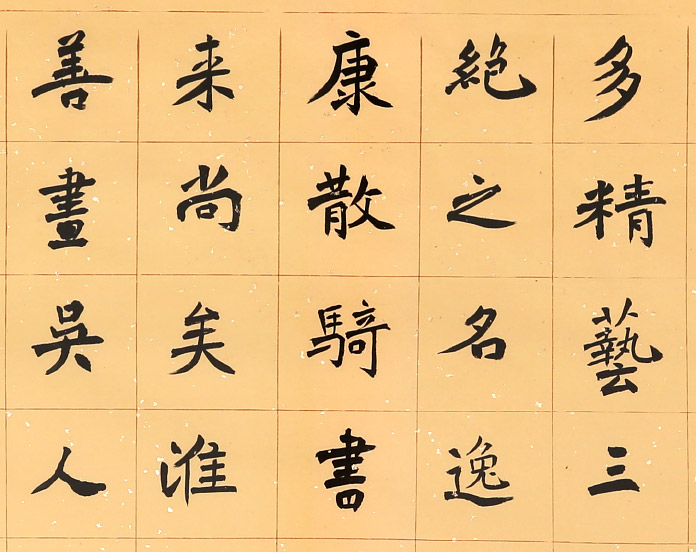 多精藝三
絶之名逸
康散騎書
来尚矣淮
善畫吳人